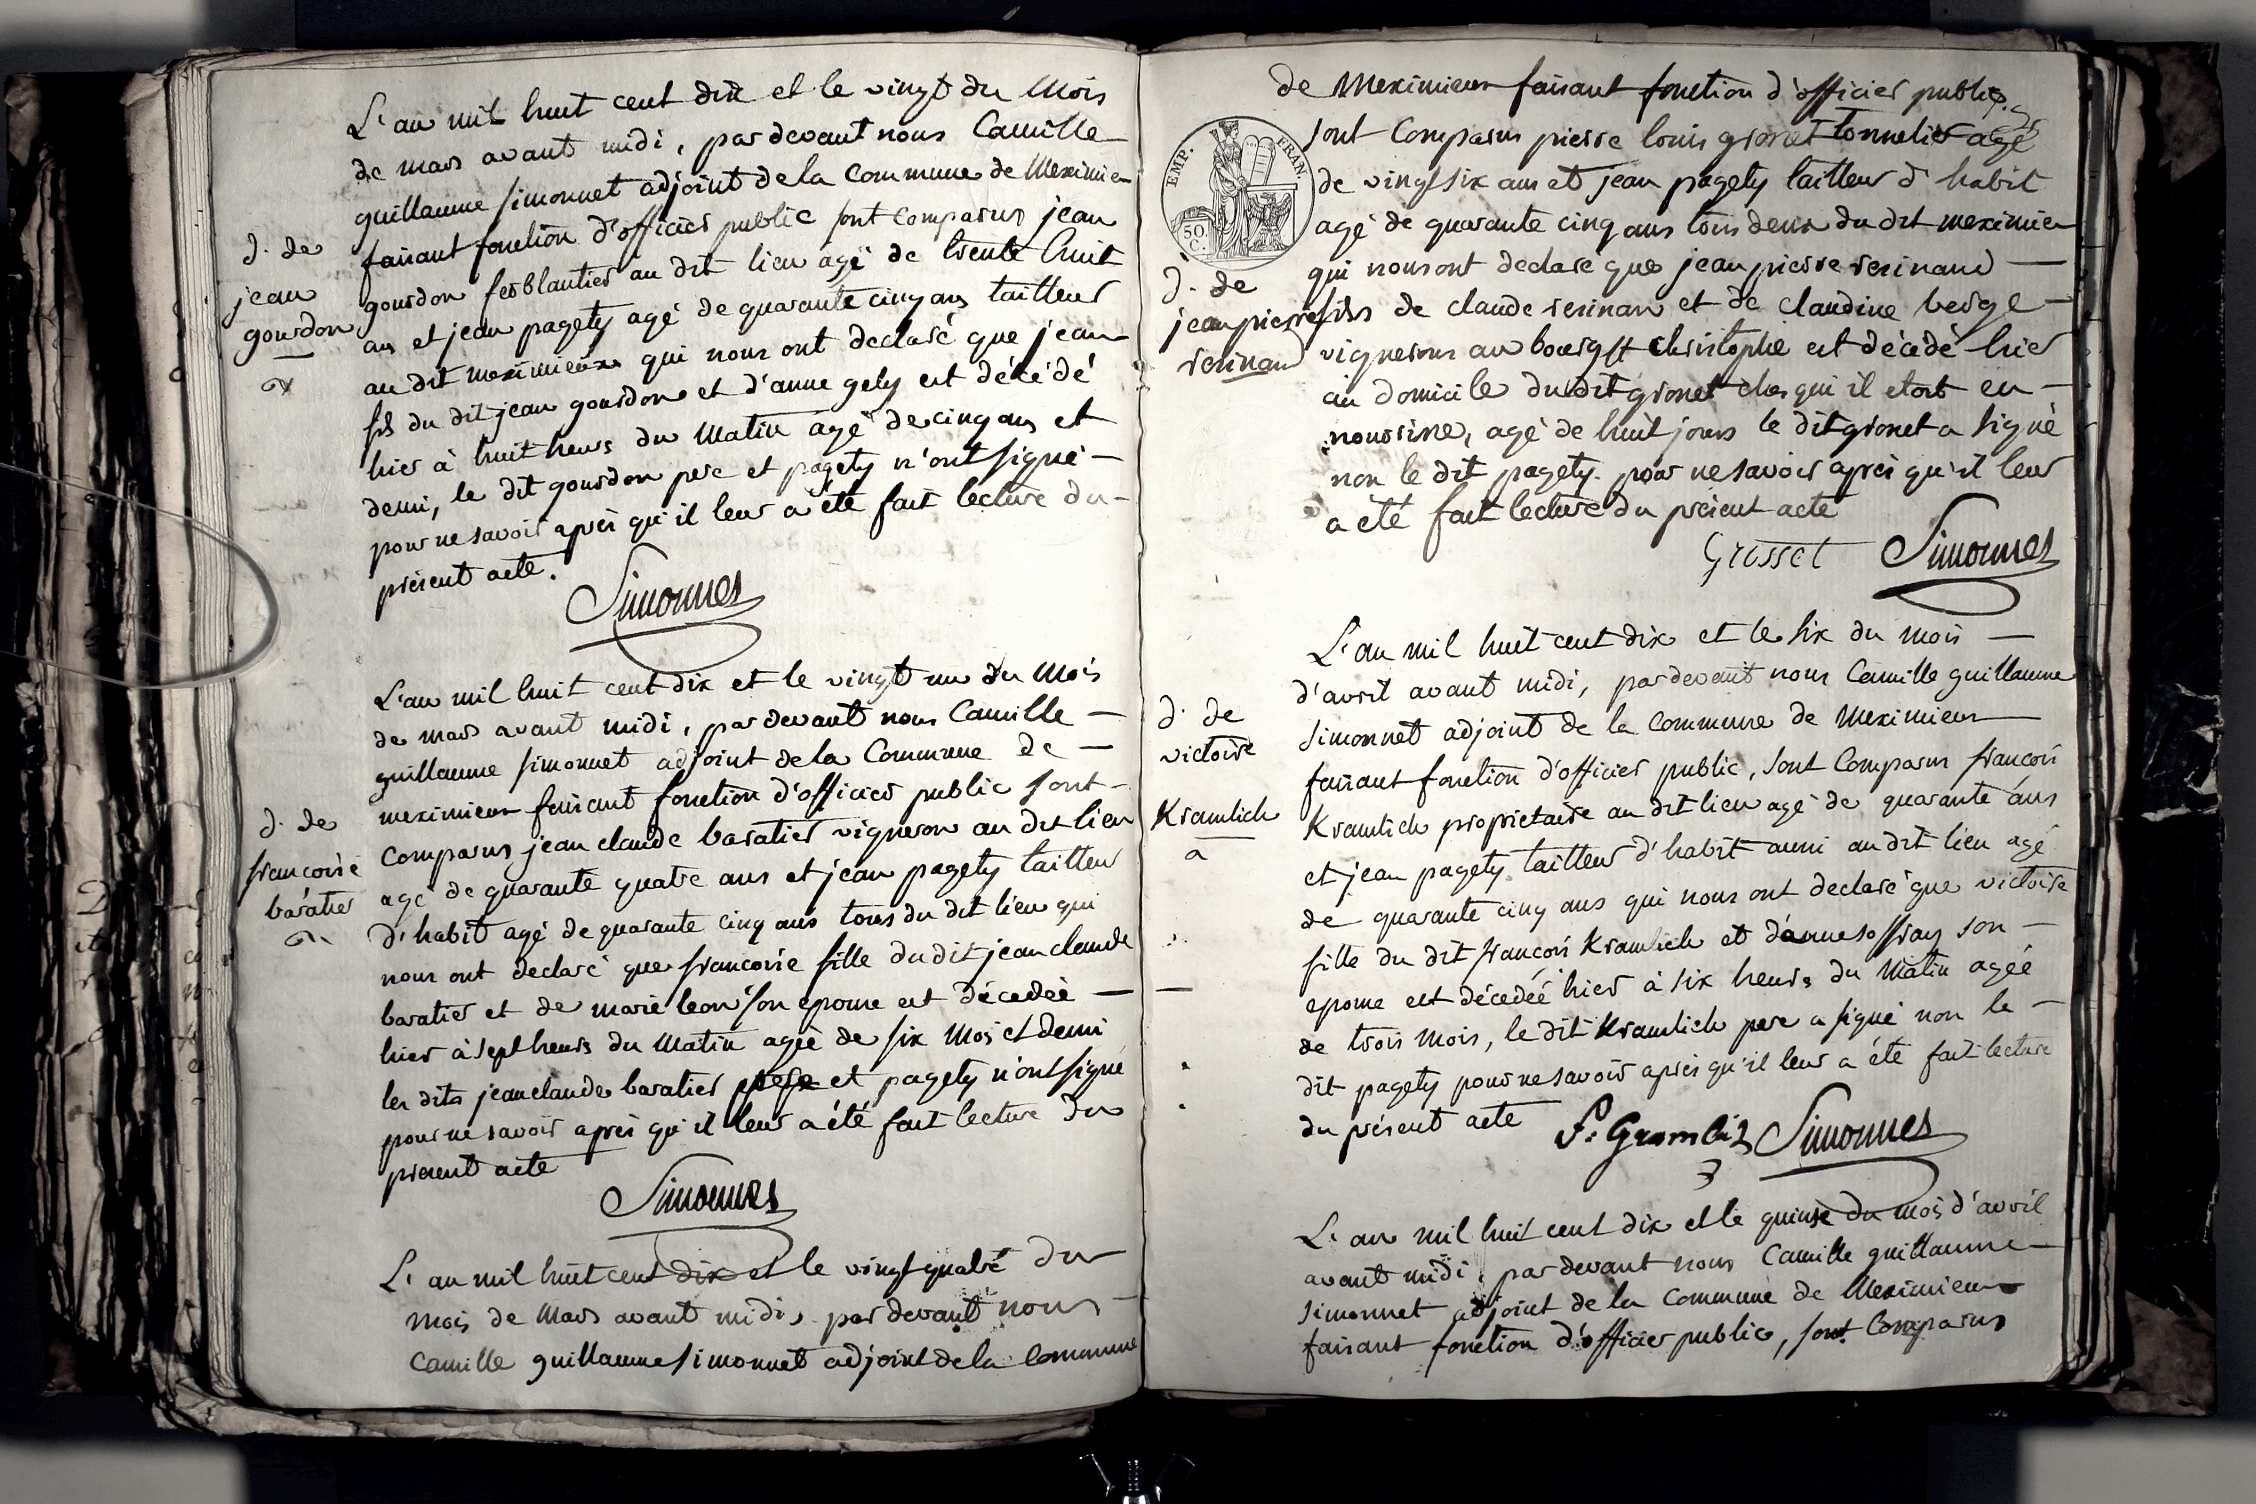 L'an mil huit cent dix et le vingt du Mois
de mars avant midi, par devant nous Camille
guillaume simonnet adjoint de la Commune de Meximieu
faisant fonction d'officier public sont comparus jean
d. de
jean
gourdon
gourdon ferblantier au dit lieu agé de trente huit
ans et jean pagety agé de quarante cinq ans tailleur
au dit meximieux qui nous ont declaré que jean
fils du dit jean gourdon et d'anne gely est décédé
hier à huit heurs du Matin agé de cinq ans et
demi, le dit gourdon pere et pagety n'ont signé
pour ne savoir aprés qu'il leur a été fait lecture du
présent acte.
Simonnet
L'an mil huit cent dix et le vingt un du Mois
de mars avant midi, par devant nous Camille
guillaume simonnet adjoint de la Commune de
meximieux faisant fonction d'officier public sont
d. de
francoise
baratier
comparus jean claude baratier vigneron au dit lieu
agé de quarante quatre ans et jean pagety tailleur
d'habit agé de quarante cinq ans tous du dit lieu qui
nous ont declaré que francoise fille du dit jean claude
baratier et de marie leon son epouse est décedée
hier à sept heurs du Matin agée de six Mois et demi
les dits jean claude baratier pere et pagety n'ont signé
pour ne savoir aprés qu'il leur a été fait lecture du
present acte
Simonnet
L'an mil huit cent dix et le vingt quatre du
mois de Mars avant midi, par devant nous
Camille guillaume simonnet adjoint de la Commune
de Meximieux faisant fonction d'officier public.
EMP. FRAN.
50 C.
sont Comparus pierre louis gronet tonnelier agé
de vingt six ans et jean pagety tailleur d'habit
agé de quarante cinq ans tous deux du dit meximieu
d. de
jean pierre
verinand
qui nous ont declaré que jean pierre verinand
fils de claude verinan et de claudine berge
vignerons au bourg st christophe est décédé hier
au domicile du dit gronet ches qui il etoit en
nourrisse, agé de huit jours le dit gronet a signé
non le dit pagety pour ne savoir aprés qu'il leur
a été fait lecture du présent acte
Grosset Simonnet
L'an mil huit cent dix et le six du mois
d'avril avant midi, par devant nous Camille guillaume
d. de
victoire
Kramlich
simonnet adjoint de la Commune de Meximieux
faisant fonction d'officier public, sont Comparus francois
Kramlich proprietaire au dit lieu agé de quarante ans
et jean pagety tailleur d'habit aussi au dit lieu agé
de quarante cinq ans qui nous ont declaré que victoire
fille du dit francois Kramlich et d'anne soffray son
epouse est décedée hier à six heurs du Matin agée
de trois Mois, le dit Kramlich pere a signé non le
dit pagety pour ne savoir aprés qu'il leur a été fait lecture
du présent acte
Simonnet
L'an mil huit cent dix et le quinse du mois d'avril
avant midi, par devant nous Camille guillaume
simonnet adjoint de la Commune de Meximieux
faisant fonction d'officier public, sont Comparus